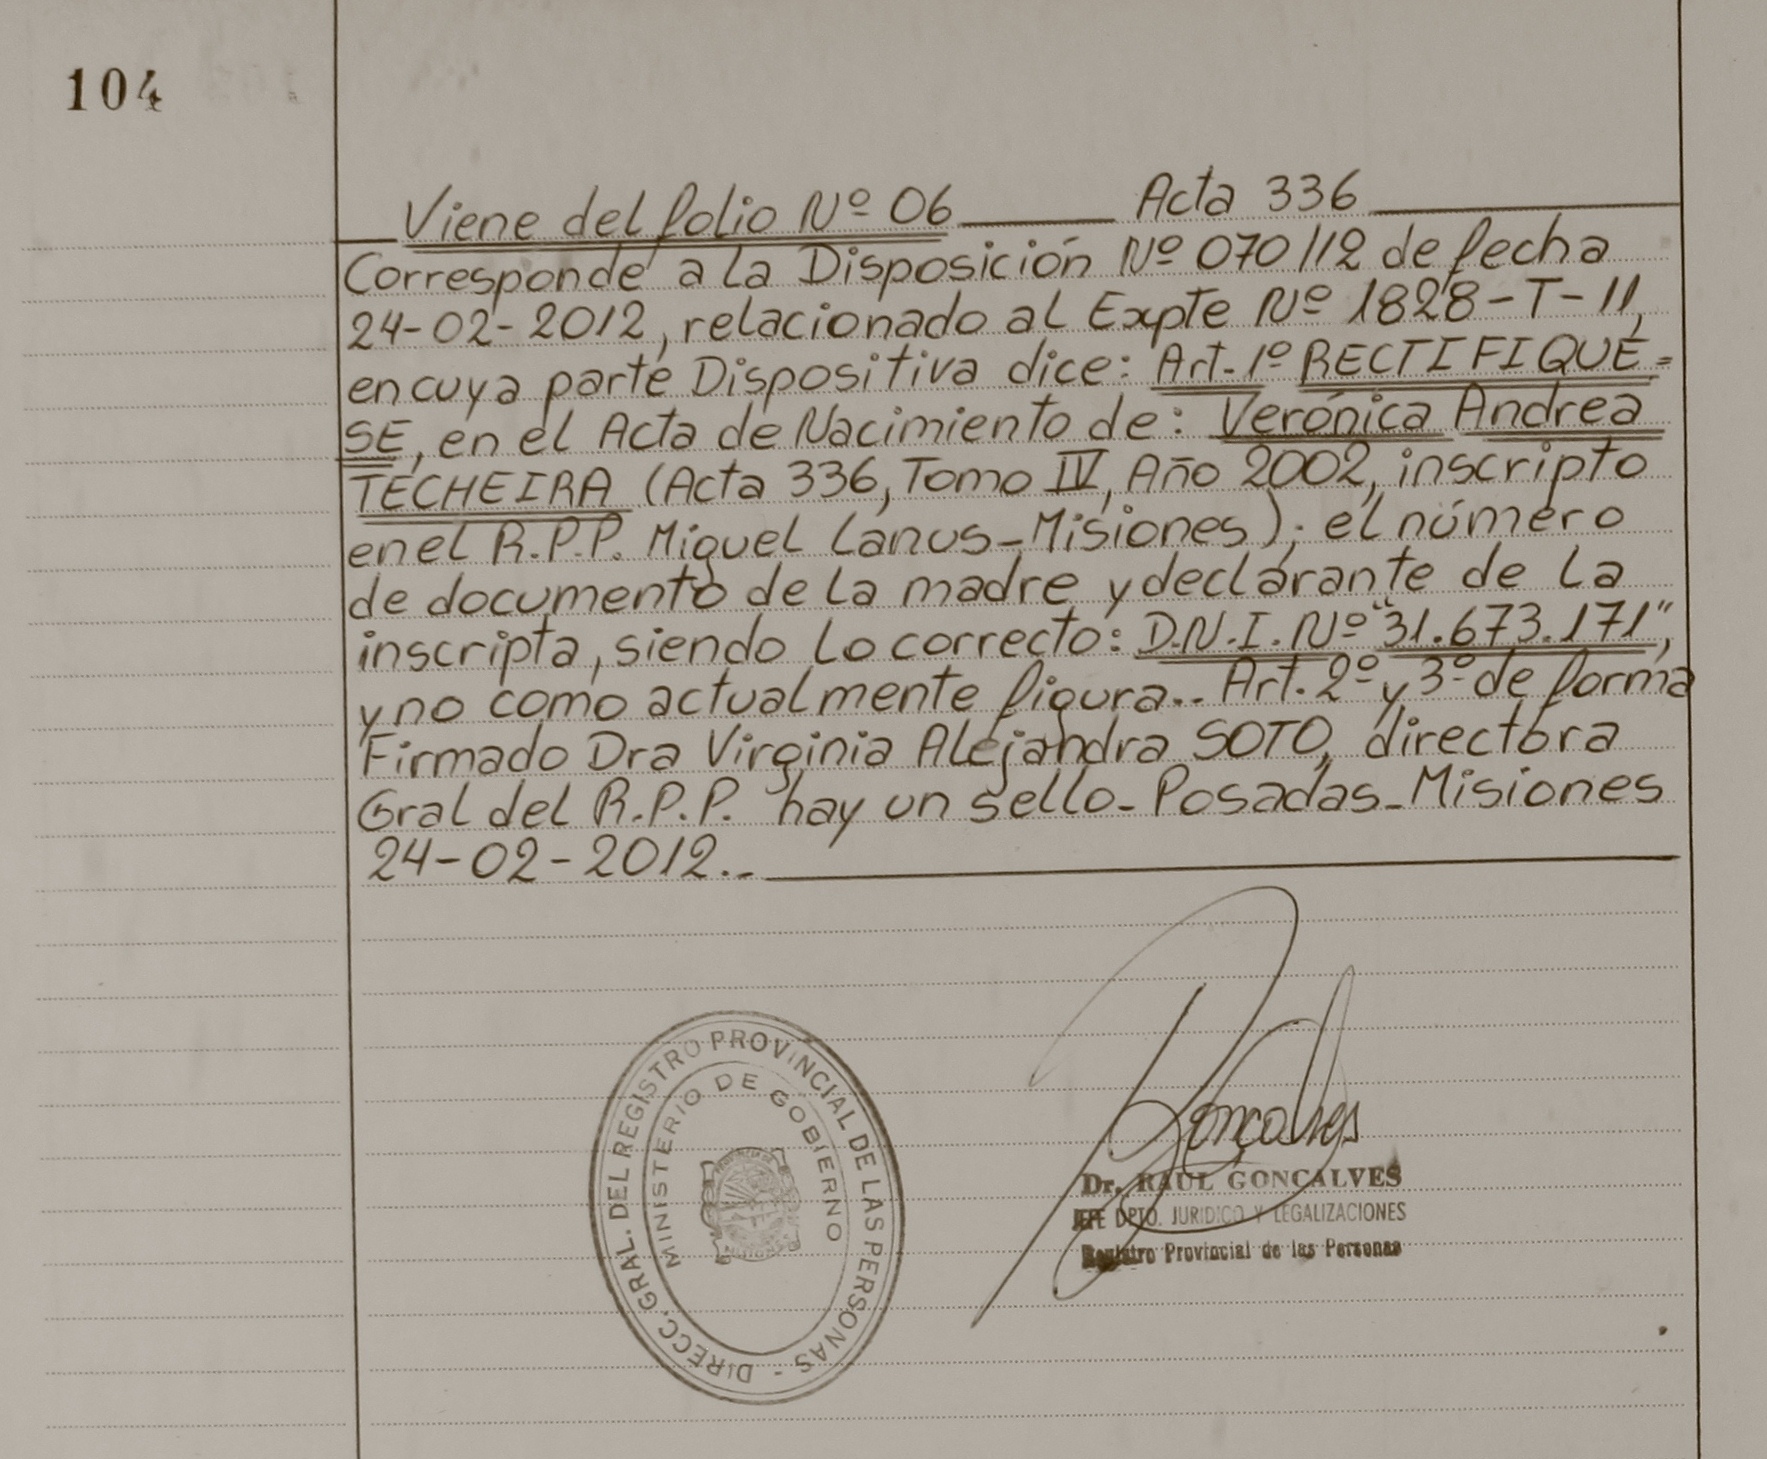 104
Viene del folio Nº 06 Acta 336
Corresponde a la Disposición Nº 070/12 de fecha
24-02-2012, relacionado al Expte Nº 1828-T-11,
en cuya parte Dispositiva dice: Art. 1º RECTIFIQUE=
SE, en el Acta de Nacimiento de: Verónica Andrea
TECHEIRA (Acta 336, Tomo IV, Año 2002, inscripto
en el R.P.P. Miguel Lanus-Misiones); el número
de documento de la madre y declarante de la
inscripta, siendo lo correcto: D.N.I. Nº "31.673.171",
y no como actualmente figura.- Art. 2º y 3º de forma
Firmado Dra Virginia Alejandra SOTO, directora
Gral del R.P.P. hay un sello-Posadas-Misiones
24-02-2012.-
DIRECC. GRAL. DEL REGISTRO PROVINCIAL DE LAS PERSONAS -
MINISTERIO DE GOBIERNO
Gonçalves
Dr. RAUL GONCALVES
JEFE DPTO. JURIDICO Y LEGALIZACIONES
Registro Provincial de las Personas